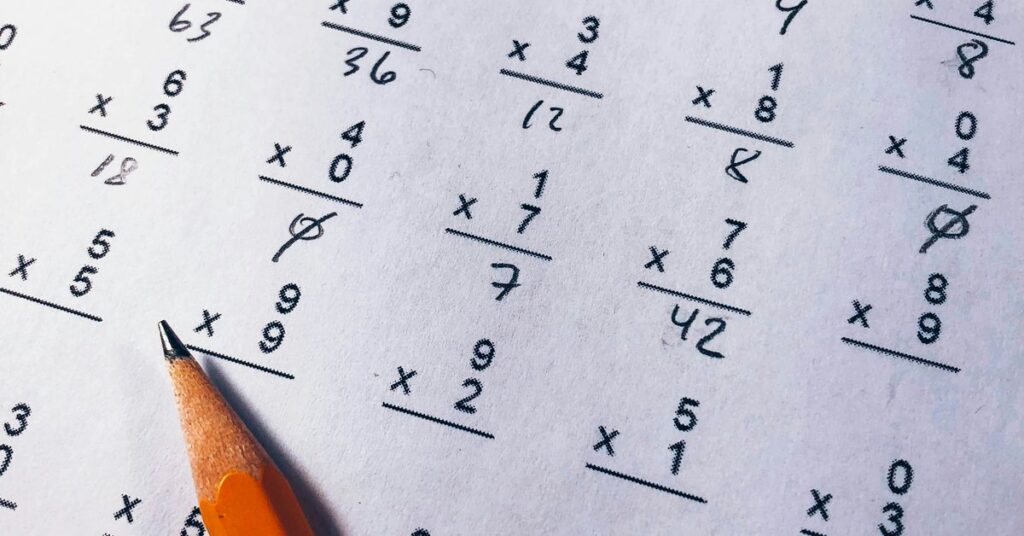 4
8
x 9 3 1 0
63 36 x 4 x 8 x 4
12 8 0
6 4 1 7 8
x 3 x 0 x 7 x 6 x 9
18 0 7 42
5 9 9 5 0
x 5 x 9 x 2 x 1 x 3
3
0
x 5